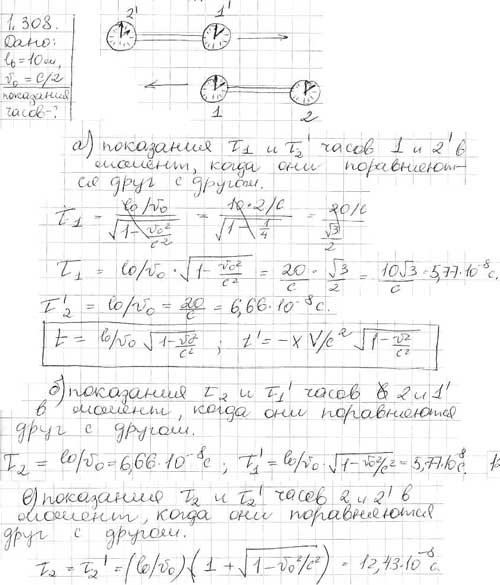 1.308.
2' 1'
Дано:
l₀ = 10 см,
v₀ = c/2
показания
часов-?
1 2
а) показания τ₁ и τ₂' часов 1 и 2' в
момент, когда они поравняют-
ся друг с другом.
τ₁ = (l₀/v₀)/√(1 - v₀²/c²) = (10·2/c)/√(1 - 1/4) = (20/c)/(√3/2)
τ₁ = l₀/v₀ · √(1 - v₀²/c²) = 20/c · √3/2 = 10√3/c = 5,77·10⁻⁸ с.
τ₂' = l₀/v₀ = 20/c = 6,66·10⁻⁸ с.
t = l₀/v₀ √(1 - v₀²/c²) ; t' = -x V/c² √(1 - v²/c²)
б) показания τ₂ и τ₁' часов 2 и 1'
в момент, когда они поравняются
друг с другом.
τ₂ = l₀/v₀ = 6,66·10⁻⁸ с ; τ₁' = l₀/v₀ · √(1 - v₀²/c²) = 5,77·10⁻⁸ с.
в) показания τ₂ и τ₂' часов 2 и 2' в
момент, когда они поравняются
друг с другом.
τ₂ = τ₂' = (l₀/v₀)·(1 + √(1 - v₀²/c²)) = 12,43·10⁻⁸ с.